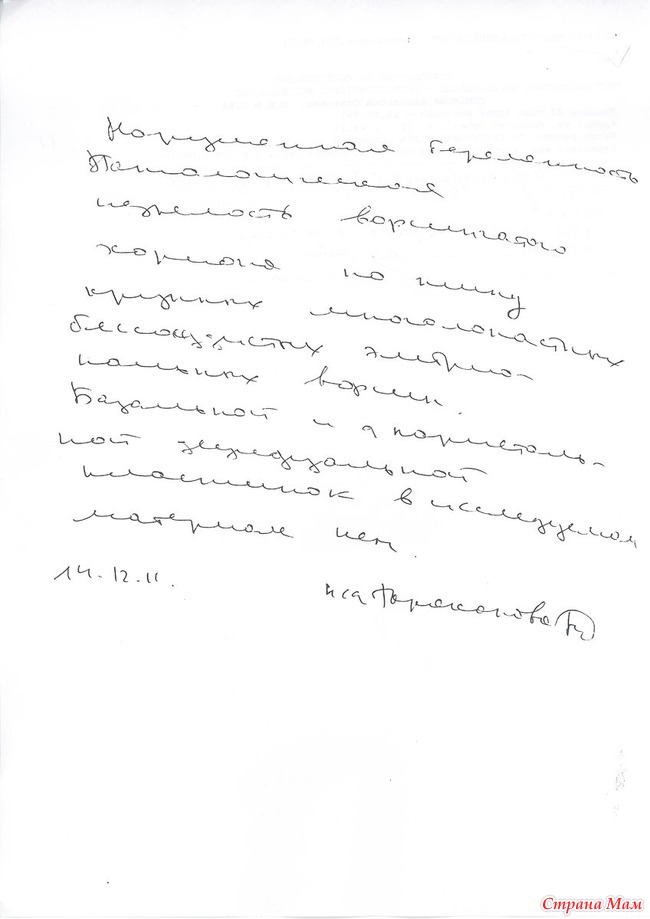 Нарушенная беременность
Патологическая
незрелость ворсинчатого
хориона по типу
крупных многолопастных
бессосудистых эмбрио-
нальных ворсин.
Базальной и париеталь-
ной децидуальной
пластинок в исследуемом
материале нет.
14.12.11.
Страна Мам